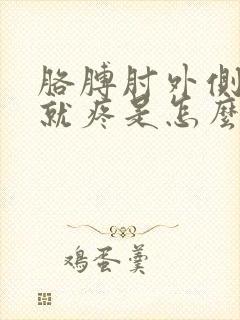 胳膊肘外侧
就疼是怎麽
鸡蛋羹